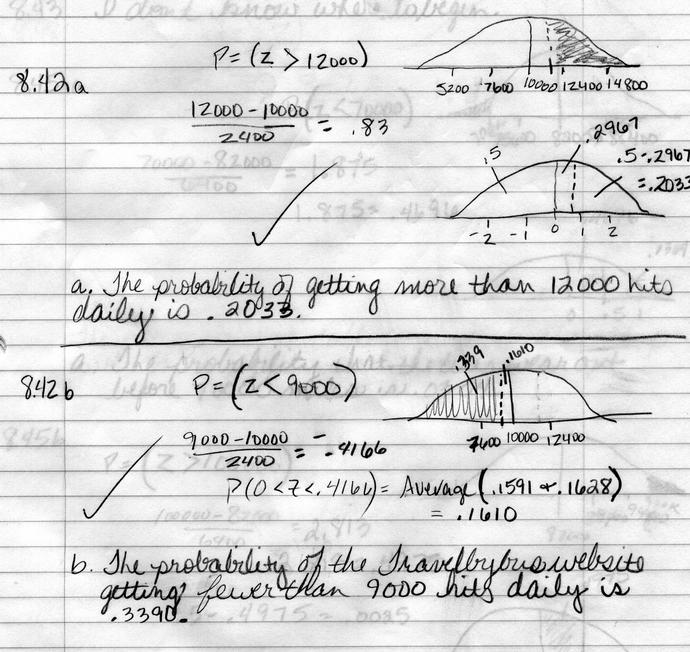 8.42a
P=(Z>12000)
5200 7600 10000 12400 14800
12000-10000
2400
= .83
.5
.2967
.5-.2967
=.2033
-2 -1 0 1 2
a. The probability of getting more than 12000 hits
daily is .2033.
8.42b
P=(Z<9000)
.339 .1610
7600 10000 12400
9000-10000
2400
= -.4166
P(0<Z<.4166)= Average (.1591 & .1628)
= .1610
b. The probability of the Travelbybus website
getting fewer than 9000 hits daily is
.3390.